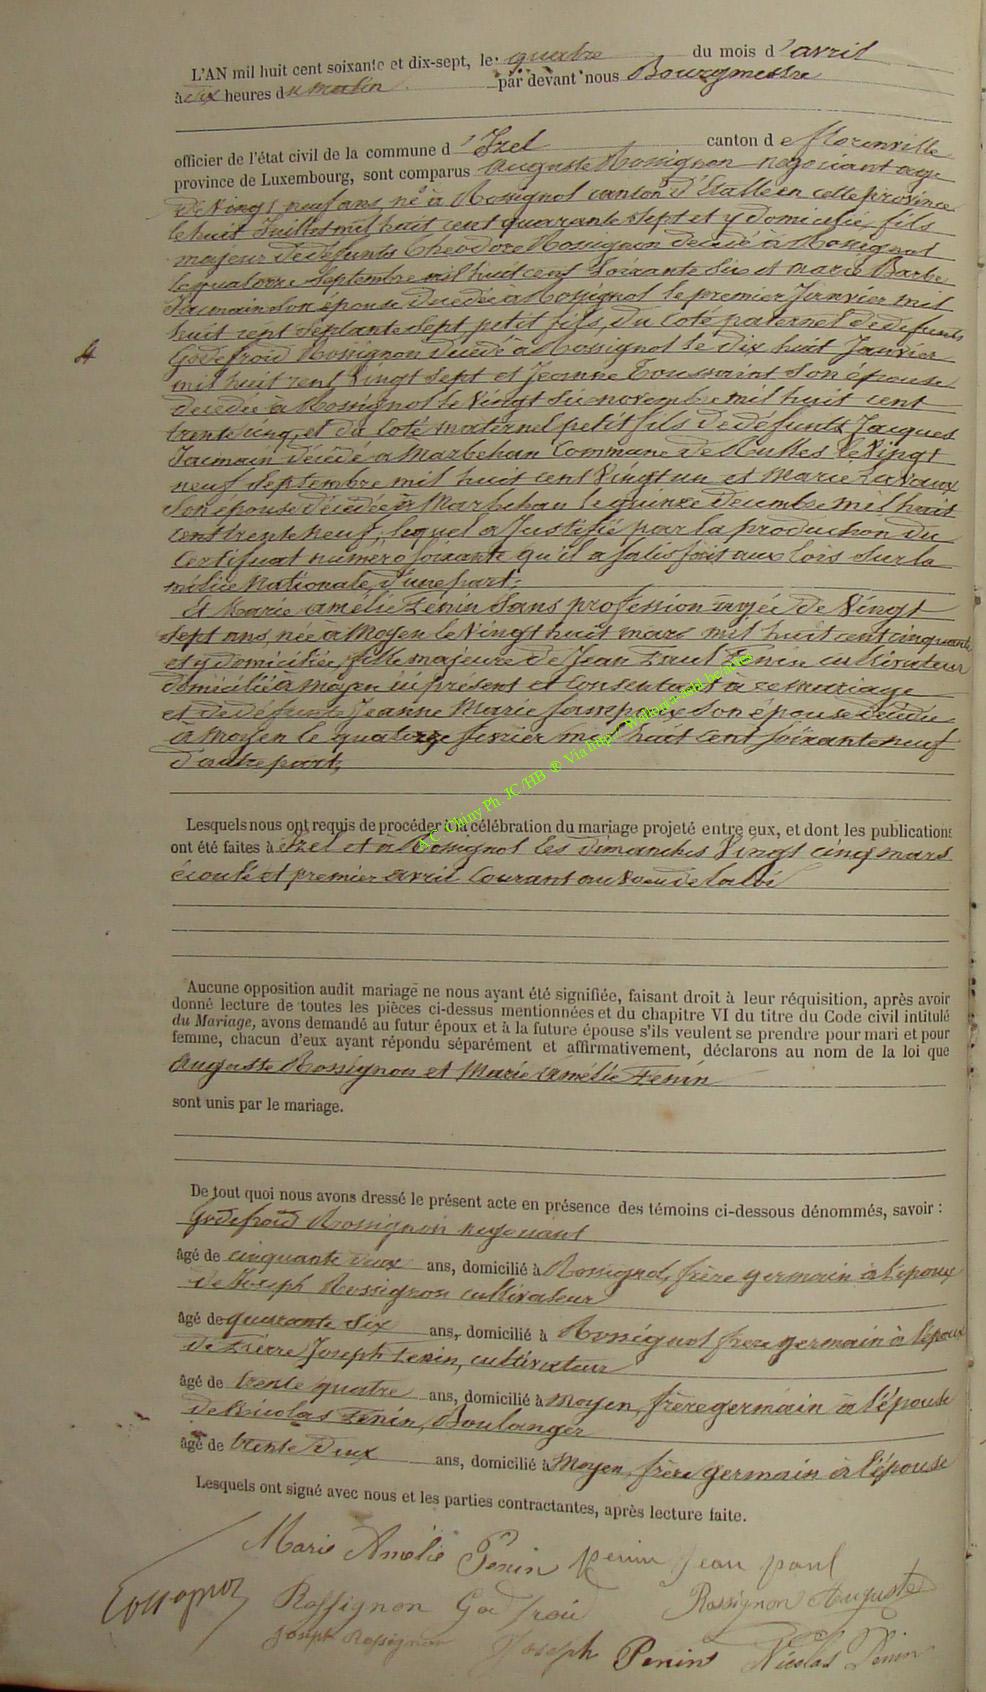 L'AN mil huit cent soixante et dix-sept, le quatre du mois d'avril
à dix heures du matin par devant nous Bourgmestre
officier de l'état civil de la commune d'Izel canton de florenville
province de Luxembourg, sont comparus Auguste Rossignon négociant age
de Vingt neuf ans, né à Rossignol canton d'Etalle en cette province
le huit Juillet mil huit cent quarante sept et y domicilié, fils
majeur de défunts Théodore Rossignon décédé à Rossignol
le quatorze Septembre mil huit cent Soixante Six et Marie Barbe
Jacmain son épouse décédée à Rossignol le premier Janvier mil
huit cent Septante Sept petit fils, du coté paternel de défunts
4
Godefroid Rossignon décédé à Rossignol le dix huit Janvier
mil huit cent Vingt Sept et Jeanne Toussaint Son épouse
décédée à Rossignol le Vingt Six novembre mil huit cent
trente cinq, et du Coté maternel petit fils de défunts Jacques
Jacmain décédé à Marbehan Commune de Rulles le Vingt
neuf Septembre mil huit cent Vingt un et Marie Lavaux
Son épouse décédée à Marbehan le quinze décembre mil huit
Cent trente neuf, lequel a Justifié par la production du
Certificat numero soixante qu'il a satisfait aux lois Sur la
milice Nationale, d'une part;
Et Marie amélie Penin Sans profession agée de Vingt
Sept ans, née à Moyen le Vingt huit mars mil huit cent cinquante
et y domiciliée, fille majeure de Jean Paul Penin cultivateur
domicilié à Moyen ici présent et Consentant à ce mariage
et de défunte Jeanne Marie Son épouse décédée
à Moyen le quatorze février mil huit Cent Soixante neuf
d'autre part;
A.C. Chiny Ph. JC/HB ® Via http://Wallonia-asbl.be/actes
Lesquels nous ont requis de procéder à la célébration du mariage projeté entre eux, et dont les publications
ont été faites à Izel et à Rossignol les dimanches Vingt cinq mars
écoulé et premier avril Courant au Voeu de la loi
Aucune opposition audit mariage ne nous ayant été signifiée, faisant droit à leur réquisition, après avoir
donné lecture de toutes les pièces ci-dessus mentionnées et du chapitre VI du titre du Code civil intitulé
du Mariage, avons demandé au futur époux et à la future épouse s'ils veulent se prendre pour mari et pour
femme, chacun d'eux ayant répondu séparément et affirmativement, déclarons au nom de la loi que
Auguste Rossignon et Marie Amélie Penin
sont unis par le mariage.
De tout quoi nous avons dressé le présent acte en présence des témoins ci-dessous dénommés, savoir :
Godefroid Rossignon négociant
âgé de cinquante deux ans, domicilié à Rossignol, frère germain à l'époux
de Joseph Rossignon cultivateur
âgé de quarante Six ans, domicilié à Rossignol frere germain à l'époux
de Pierre Joseph Penin, cultivateur
âgé de trente quatre ans, domicilié à Moyen, frère germain à l'épouse
de Nicolas Penin, Boulanger
âgé de trente deux ans, domicilié à Moyen, frère germain à l'épouse
Lesquels ont signé avec nous et les parties contractantes, après lecture faite.
Marie Amélie Penin Penin Jean paul
Rossignon Godfroid Rossignon Auguste
Joseph Rossignon Joseph Penin Nicolas Penin